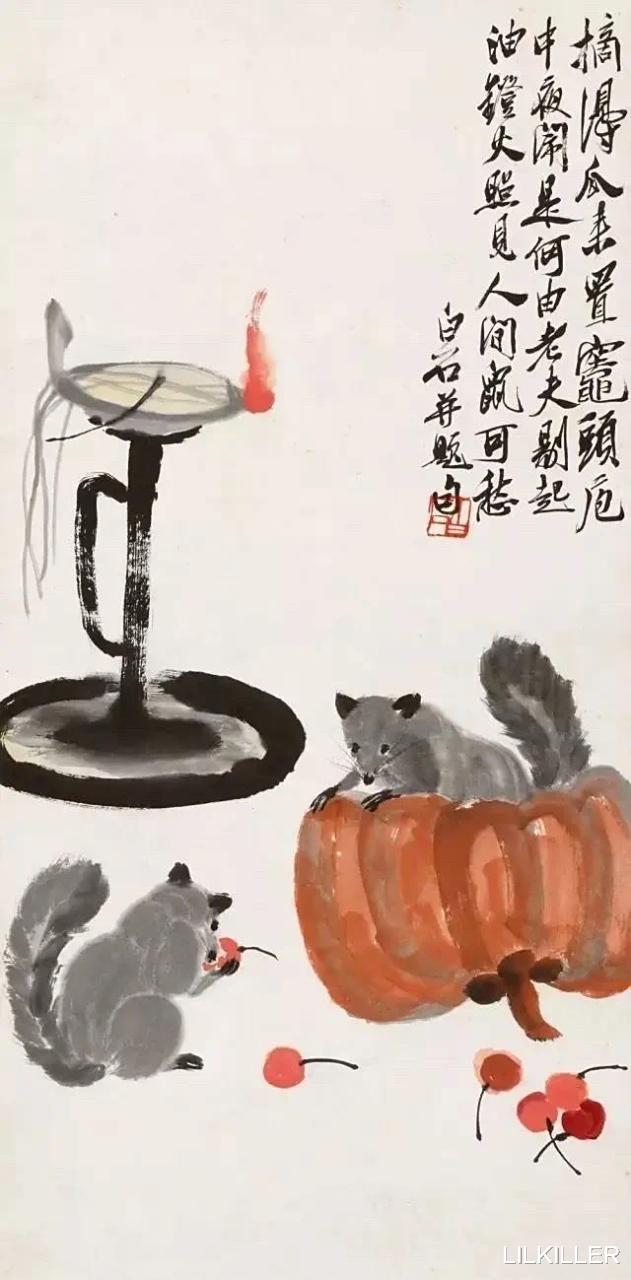 摘得瓜来置竈頭庖
中夜鬧是何由老夫剔起
油鐙火照見人間鼠可愁
白石并题句
LILKILLER